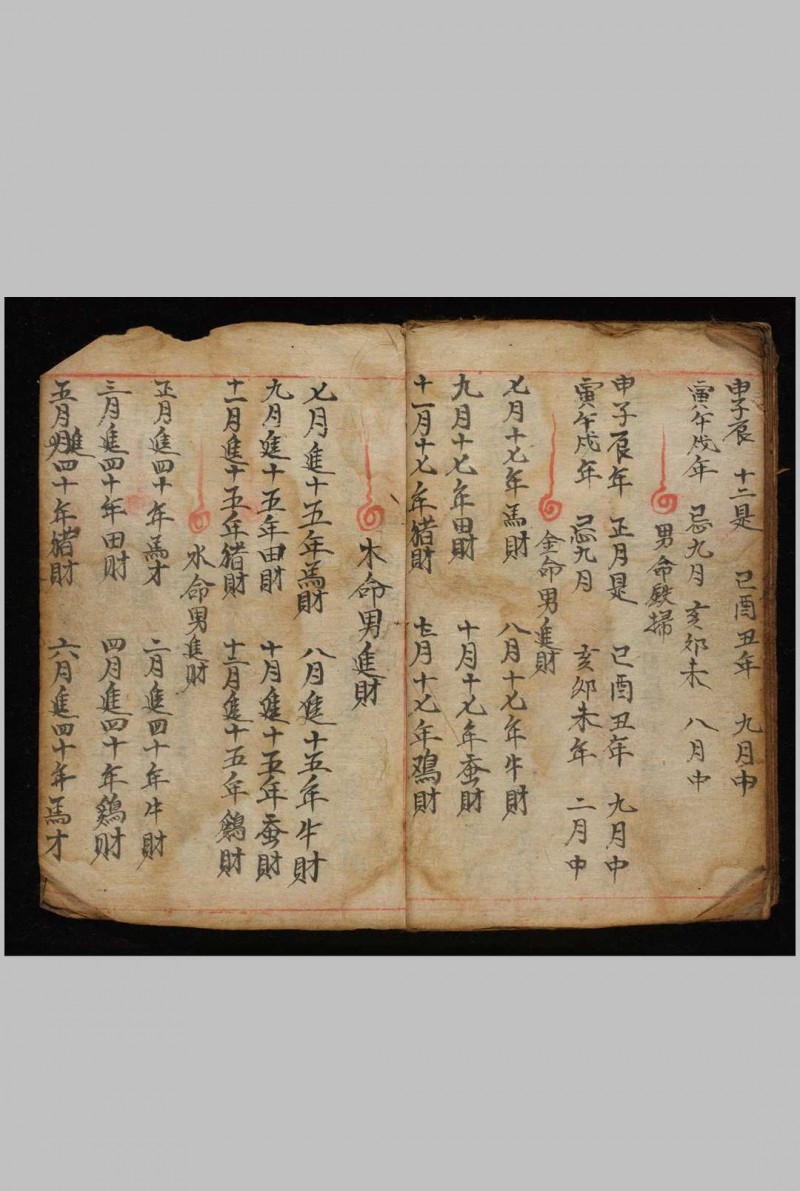 申子辰 十二是 己酉丑年 九月中
寅午戌年 忌九月 亥卯未 八月中
男命殿掃
申子辰年 正月是 己酉丑年 九月中
寅午戌年 忌九月 亥卯未年 二月中
金命男進財
七月十七年馬財 八月十七年牛財
九月十七年田財 十月十七年蚕財
十一月十七年猪財 十二月十七年鵐財
木命男進財
七月進十五年馬財 八月進十五年牛財
九月進十五年田財 十月進十五年蚕財
十一月進十五年猪財 十二月進十五年鷄財
水命男進財
正月進四十年馬才 二月進四十年牛財
三月進四十年田財 四月進四十年鷄財
五月進四十年猪財 六月進四十年馬才